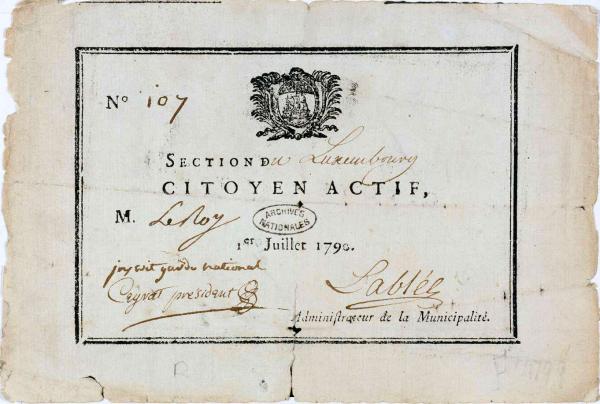 N° 107
SECTION Du Luxembourg
CITOYEN ACTIF,
M. LeRoy
ARCHIVES NATIONALES
1er Juillet 1790.
garde national
président
Lablée
Administrateur de la Municipalité.